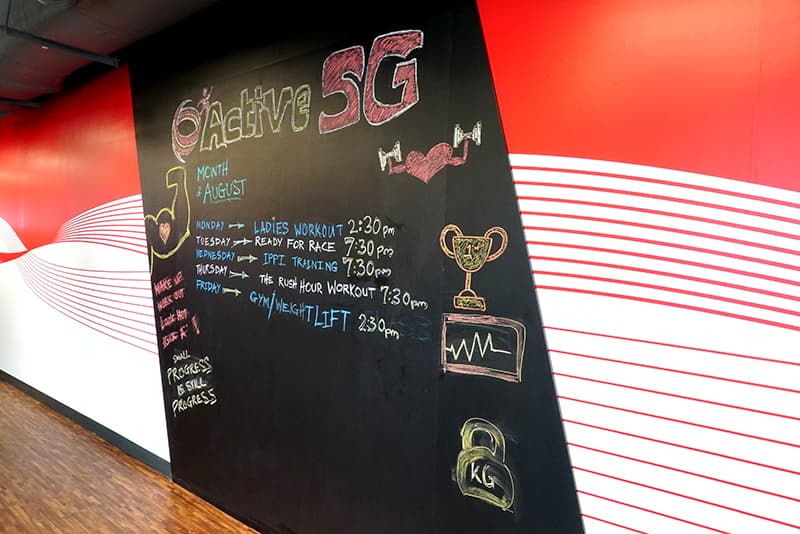 Active SG
MONTH
of AUGUST
MONDAY LADIES WORKOUT 2:30pm
TUESDAY READY FOR RACE 7:30pm
WEDNESDAY IPPI TRAINING 7:30pm
THURSDAY THE RUSH HOUR WORKOUT 7:30pm
FRIDAY GYM/WEIGHTLIFT 2:30pm
WORK OUT
LOOK HOT
SMALL
PROGRESS
IS STILL
PROGRESS
1st
KG